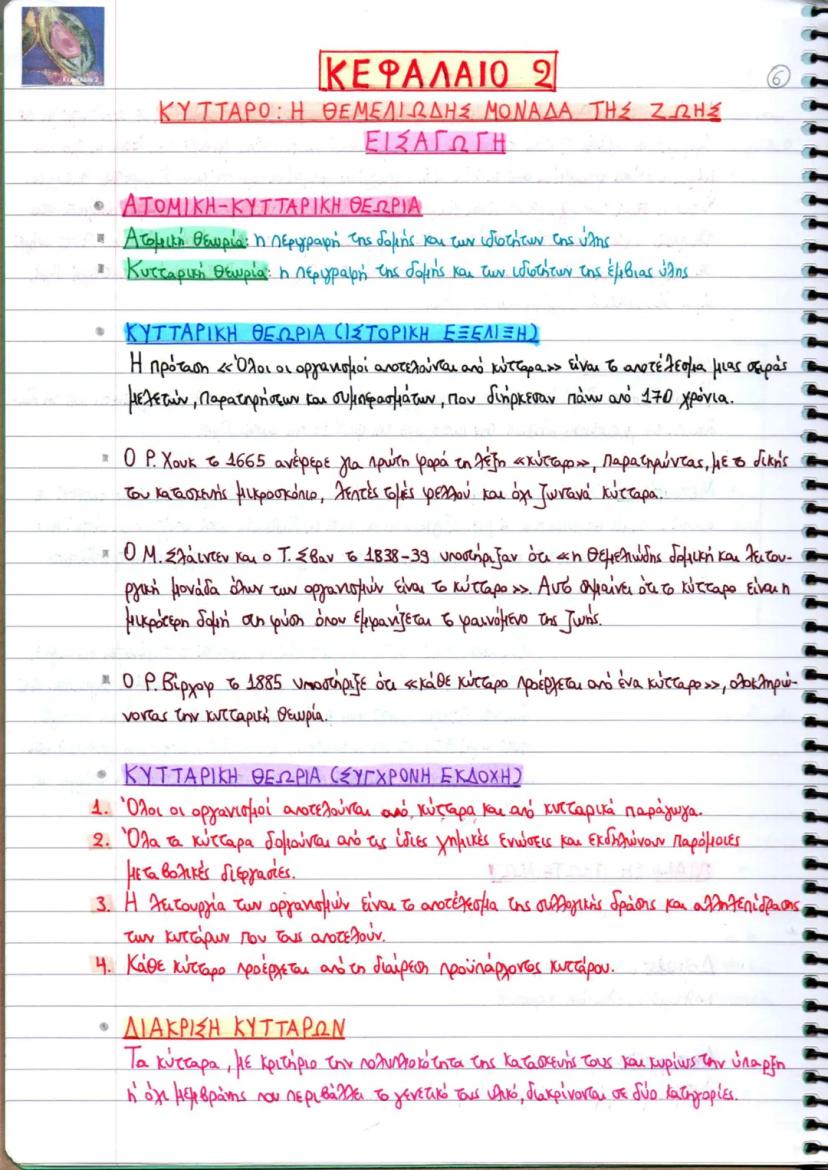 ΚΕΦΑΛΑΙΟ 2
6
ΚΥΤΤΑΡΟ: Η ΘΕΜΕΛΙΩΔΗΣ ΜΟΝΑΔΑ ΤΗΣ ΖΩΗΣ
ΕΙΣΑΓΩΓΗ
ΑΤΟΜΙΚΗ-ΚΥΤΤΑΡΙΚΗ ΘΕΩΡΙΑ
Ατομική θεωρία: η περιγραφή της δομής και των ιδιοτήτων της ύλης
Κυτταρική θεωρία: η περιγραφή της δομής και των ιδιοτήτων της έμβιας ύλης
ΚΥΤΤΑΡΙΚΗ ΘΕΩΡΙΑ (ΙΣΤΟΡΙΚΗ ΕΞΕΛΙΞΗ)
Η πρόταση «Όλοι οι οργανισμοί αποτελούνται από κύτταρα» είναι το αποτέλεσμα μιας σειράς
μελετών, παρατηρήσεων και συμπερασμάτων, που διήρκεσαν πάνω από 170 χρόνια.
Ο Ρ. Χουκ το 1665 ανέφερε για πρώτη φορά τη λέξη «κύτταρο», παρατηρώντας, με το δικής
του κατασκευής μικροσκόπιο, λεπτές τομές φελλού και όχι ζωντανά κύτταρα.
Ο Μ. Σλάιντεν και ο Τ. Σβαν το 1838-39 υποστήριξαν ότι «η θεμελιώδης δομική και λειτου-
ργική μονάδα όλων των οργανισμών είναι το κύτταρο». Αυτό σημαίνει ότι το κύτταρο είναι η
μικρότερη δομή στη φύση όπου εμφανίζεται το φαινόμενο της ζωής.
Ο Ρ. Βίρχοφ το 1885 υποστήριξε ότι «κάθε κύτταρο προέρχεται από ένα κύτταρο», ολοκληρώ-
νοντας την κυτταρική θεωρία.
ΚΥΤΤΑΡΙΚΗ ΘΕΩΡΙΑ (ΣΥΓΧΡΟΝΗ ΕΚΔΟΧΗ)
1. Όλοι οι οργανισμοί αποτελούνται από κύτταρα και από κυτταρικά παράγωγα.
2. Όλα τα κύτταρα δομούνται από τις ίδιες χημικές ενώσεις και εκδηλώνουν παρόμοιες
μεταβολικές διεργασίες.
3. Η λειτουργία των οργανισμών είναι το αποτέλεσμα της συλλογικής δράσης και αλληλεπίδρασης
των κυττάρων που τους αποτελούν.
4. Κάθε κύτταρο προέρχεται από τη διαίρεση προϋπάρχοντος κυττάρου.
ΔΙΑΚΡΙΣΗ ΚΥΤΤΑΡΩΝ
Τα κύτταρα, με κριτήριο την πολυπλοκότητα της κατασκευής τους και κυρίως την ύπαρξη
ή όχι μεμβράνης που περιβάλλει το γενετικό τους υλικό, διακρίνονται σε δύο κατηγορίες.